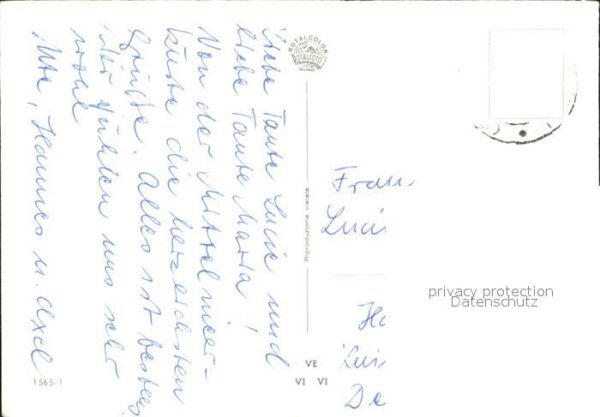 Liebe Tante Lucie und
liebe Tante Maria!
Von der Mittelmeer-
küste die herzlichsten
Grüße. Alles ist bestens,
wir fühlen uns sehr
wohl
Ute, Hannes u. Axel
ROTALCOLOR
ROTALFOTO
MILANO
Riproduzione vietata
Frau
Luci
privacy protection
Datenschutz
Ha
Lui
Da
VE
VI VI
1565/I